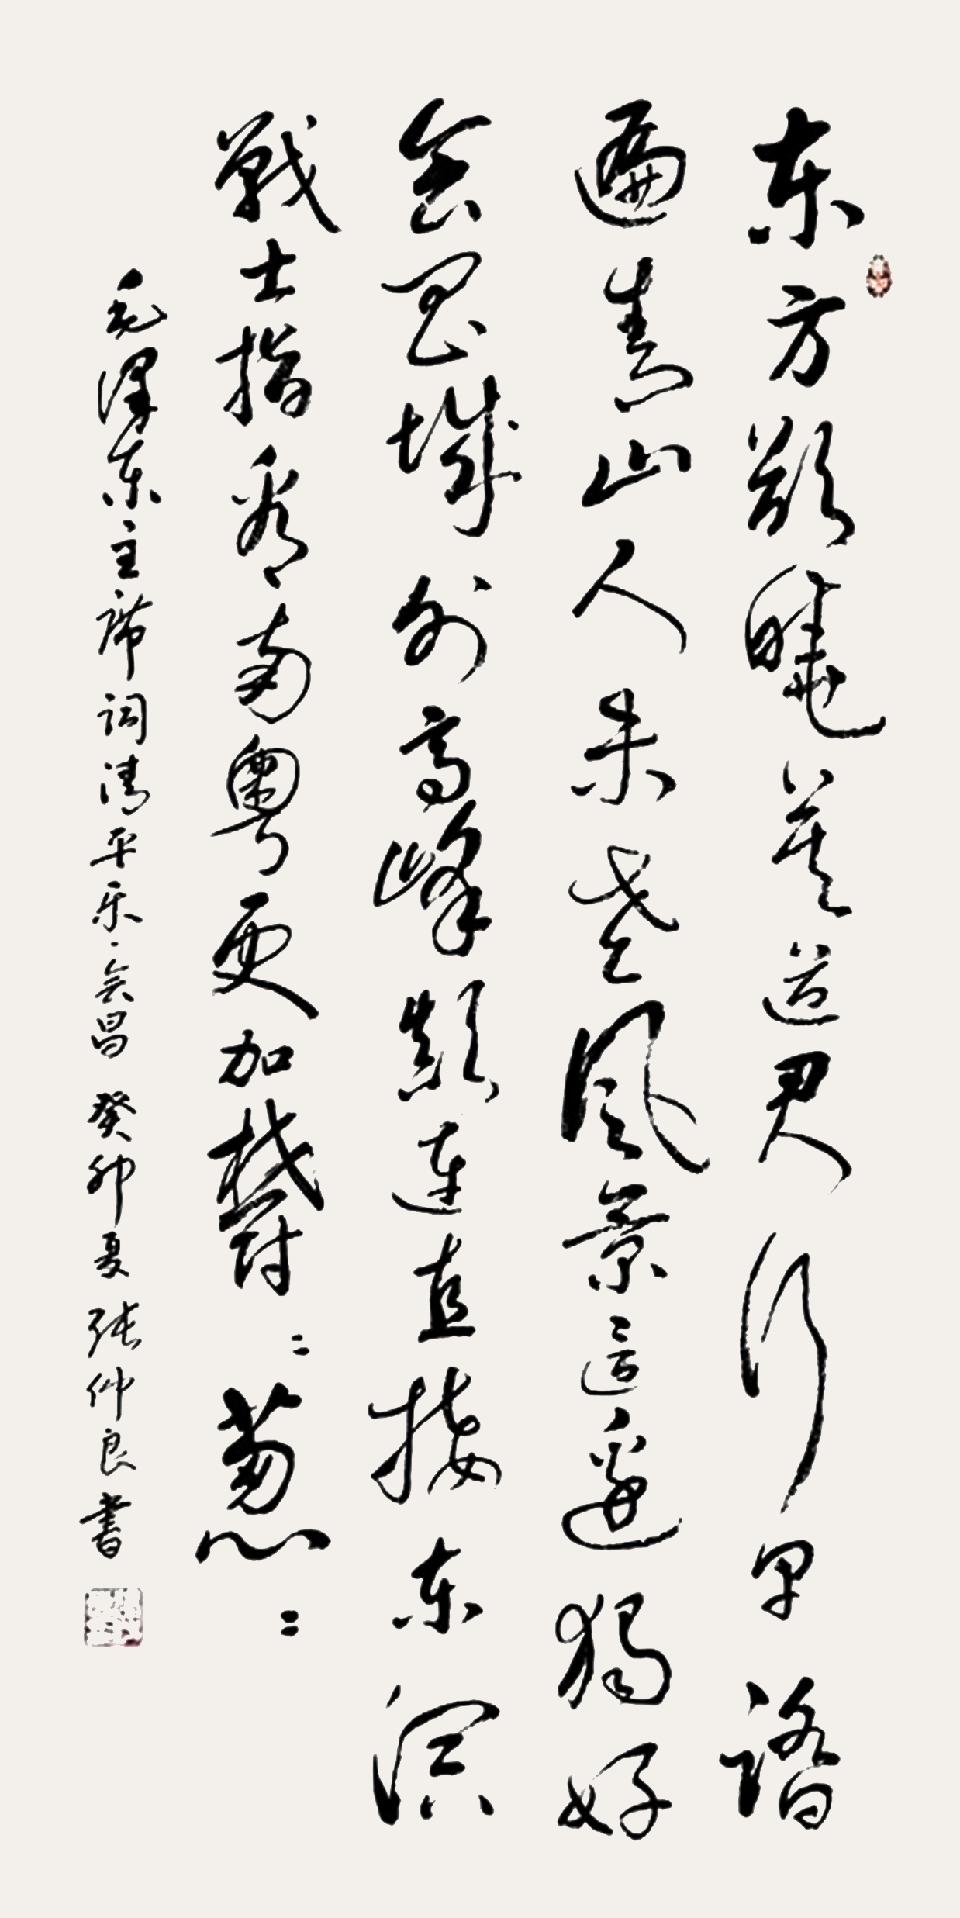 东方欲曉莫道君行早踏
遍青山人未老风景這邊獨好
会昌城外高峰顛连直接东溟
戰士指看南粤更加欝〻葱〻
毛澤东主席词清平乐·会昌 癸卯夏 张仲良書